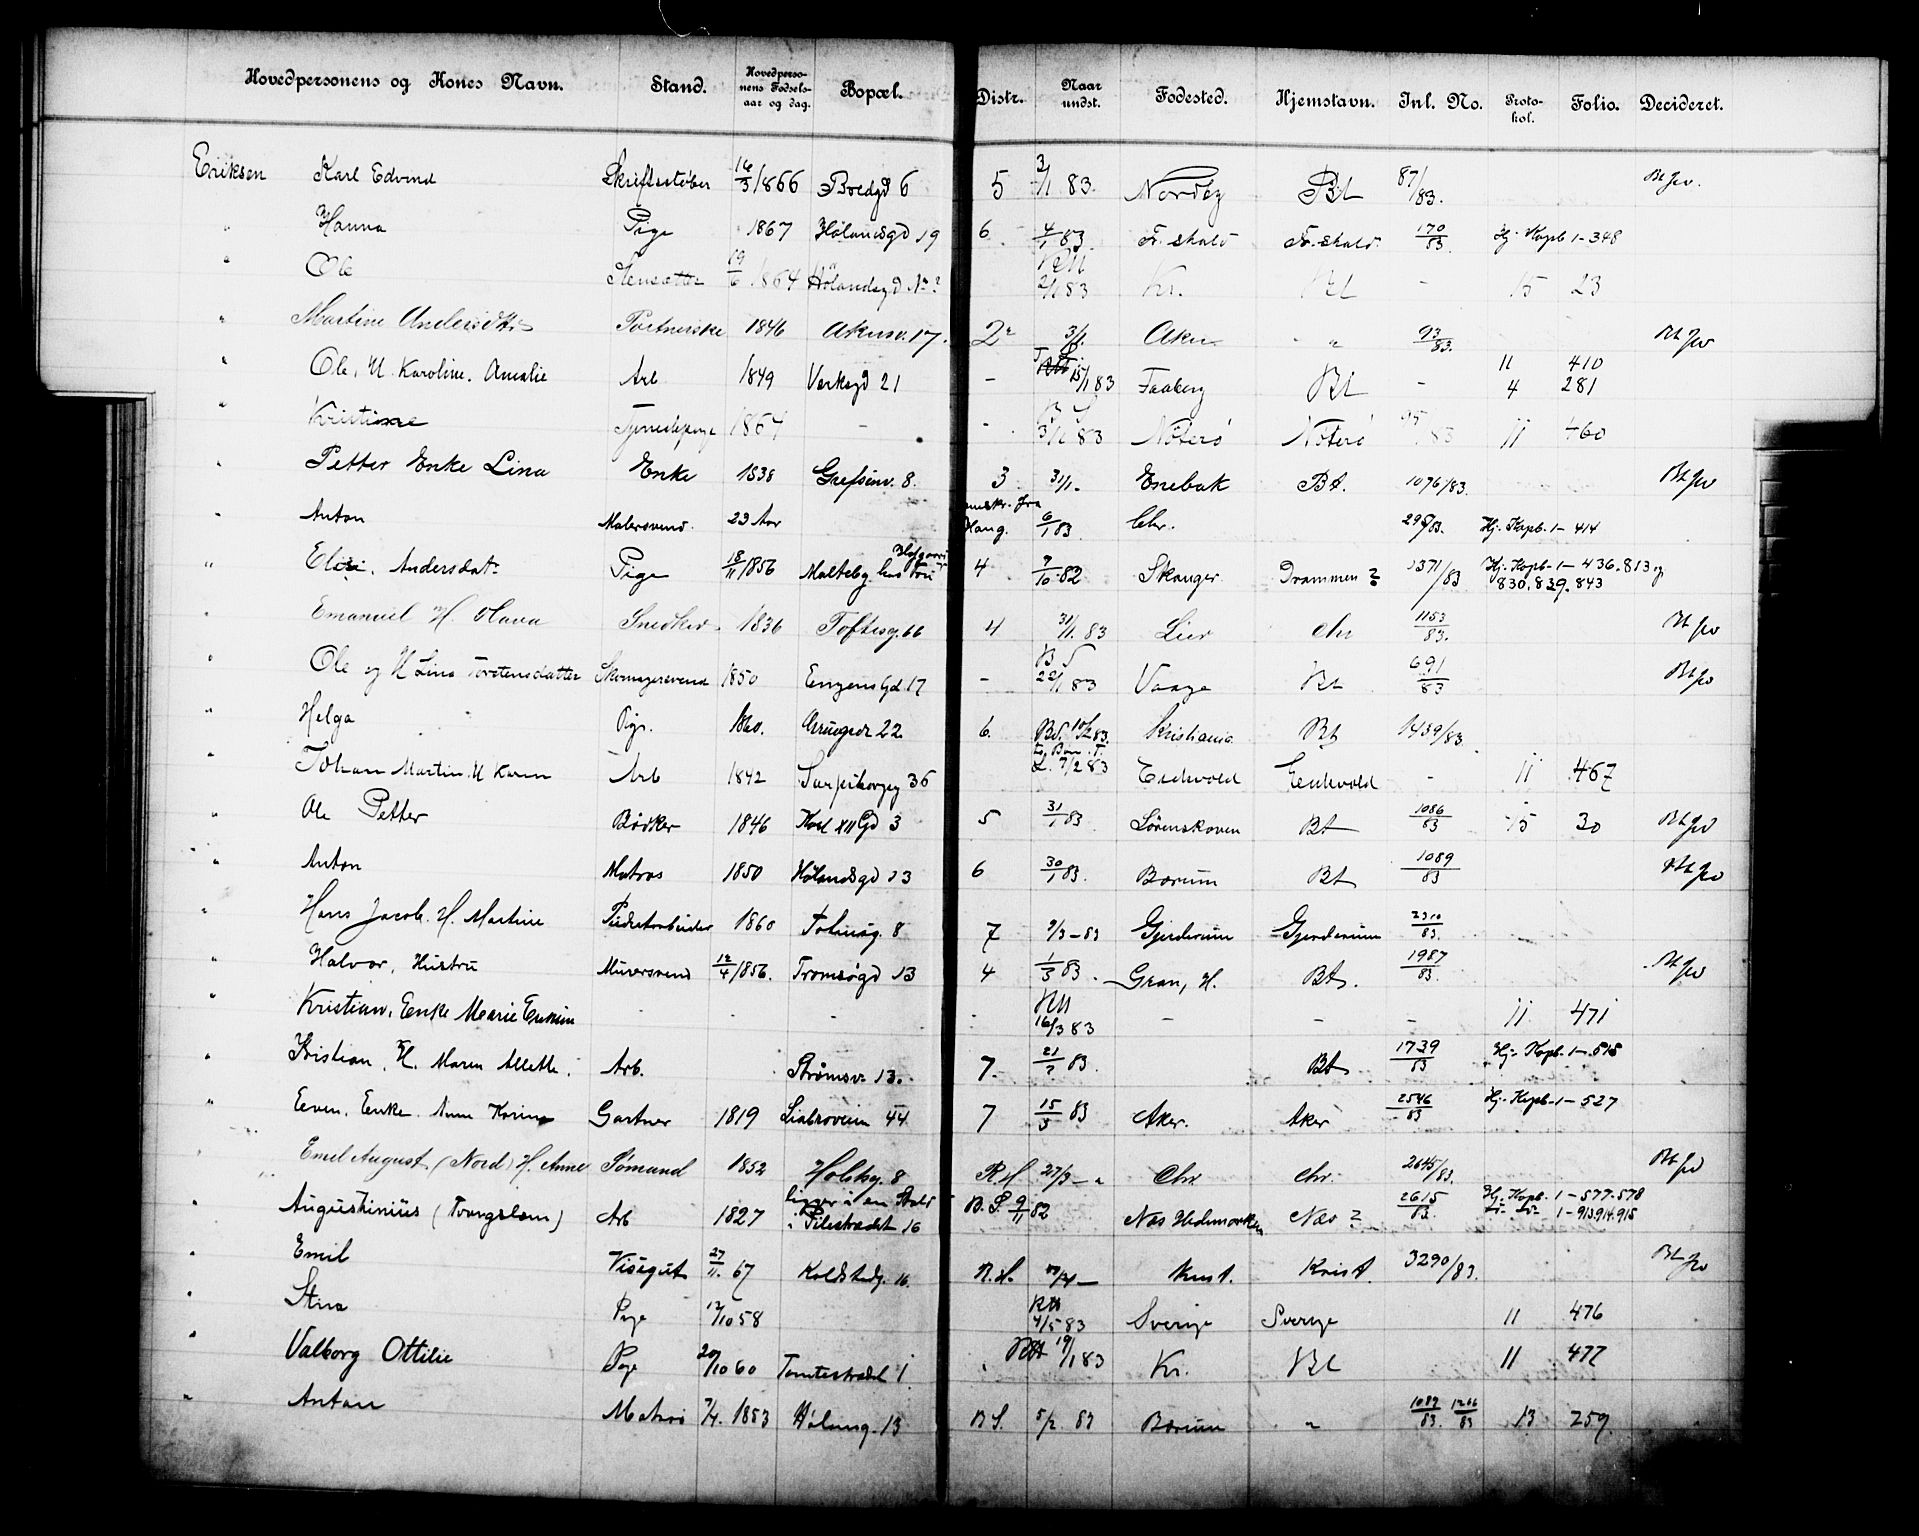 Hovedpersonens og Kones Navn. Stand. Hovedpersonens Fødselsaar og dag. Bopæl. Distr. Naar undst. Fødested. Hjemstavn. Inl. No. Protokol. Folio. Decideret.
Eriksen Karl Edvind Skriftstøber 16/3 1866 Bredgd 6 5 3/1 83. Nordby Bt 87/83. Bt fpv.
" Hanna Pige 1867 Hølandsgd 19 6. 4/1 83. Fr.shald Fr.shald. 170/83 Hj. Kopb 1-348
" Ole 19/6 1864 Hølandsgd No ? 2/1 83 Kr. Bt - 15 23
" Martine Andersdtr 1846 Akersv. 17. 2 3/1. Aker " 93/83. Bt fpv
" Ole, H. Karoline. Amalie Arb 1849 Værksgd 21 - 15/1 83 Faaberg Bt - 11 410
4 281
" Kristine Tjenestepige 1864 - - 83 Nøterø Nøterø 11 460
" Petter Enke Lina Enke 1838 Grefsenv. 8. 3 31/1. Enebak Bt. 1076/83. Bt fpv
" Anton Malersvend. 23 Aar Haug. 6/1 83. Chr. Hj. Kopb. 1- 414
" Elise. Andersdat. Pige 18/11 1856 Malteby 4 7/10 82 Skauger Drammen ? 1371/83 Hj. Kopb. 1- 436. 813 og
830. 839. 843
" Emanuel H. Olava Snedker 1836 Toftesg. 66 4 31/1. 83 Lier Chr 1153/83. Bt fpv
" Ole og H Lina Torstensdatter Skomagersvend 1850 Enggens Gd 17 - 22/1 83 Vaage Bt 691/83 Bt fpv
" Helga Pige. 1860. 22 6. 10/2 83. Kristiania. Bt 1439/83
" Johan Martin. H Karen Arb 1842 36 7/2 83 Eidsvold Eidsvold - 11 467
" Ole Petter Bødker 1846 Karl XII Gd 3 5 31/1 83. Lørenskoven Bt 1086/83 15 30 Bt fpv
" Anton Matros 1850 Hølandsgd 13 6 30/1 83. Bærum Bt 1089/83 Bt fpv
" Hans Jacob. H. Martine 1860 8 7 9/3-83 Gjerderum Gjerderum 2310/83.
" Halvor, Hustru Murersvend 12/4 1856. Tromsøgd 13 4 1/3 83. Gran, H. Bt. 1987/83 Bt fpv
" Kristian, Enke Marie - - - - 16/3 83 - - - 11 471
" Kristian, H. Maren Allette. Arb. Strømsv. 13. 7. 83. Bt 1739/83 Hj. Kopb. 1-515
" Even, Enke Anne Karine Gartner 1819 Liabroveien 44 7 15/3 83 Aker. Aker 2546/83 Hj. Kopb. 1-527
" Emil August (Nord) H. Anne Sømand 1852 Holstsg. 8 R.H 27/3 - " Chr. Chr. 2645/83. Bt fpv
" Augustinius (Tvangslem) Arb 1827 ligger i en Stald
i Pilestrædet 16 B.S 9/11 82 Næs Hedemarken Næs ? 2615/83. Hj. Kopb. 1-577-578
1-913.914.915
" Emil Visegut 27/11. 67 Koldstadg. 16. R.H. - Krist. Krist. 3290/83. Bt fpv
" Stina Pige 12/10 58 4/5 83 Sverige Sverige 11 476
" Valborg Ottilie Pige 20/10 60 Tomtestrædet 1 19/1 83 Kr. Bt 11 477
" Anton Matros 7/4. 1853 Hølansg. 13 B S. 5/2. 83 Bærum " 1089/83. 1266/83 13 259.